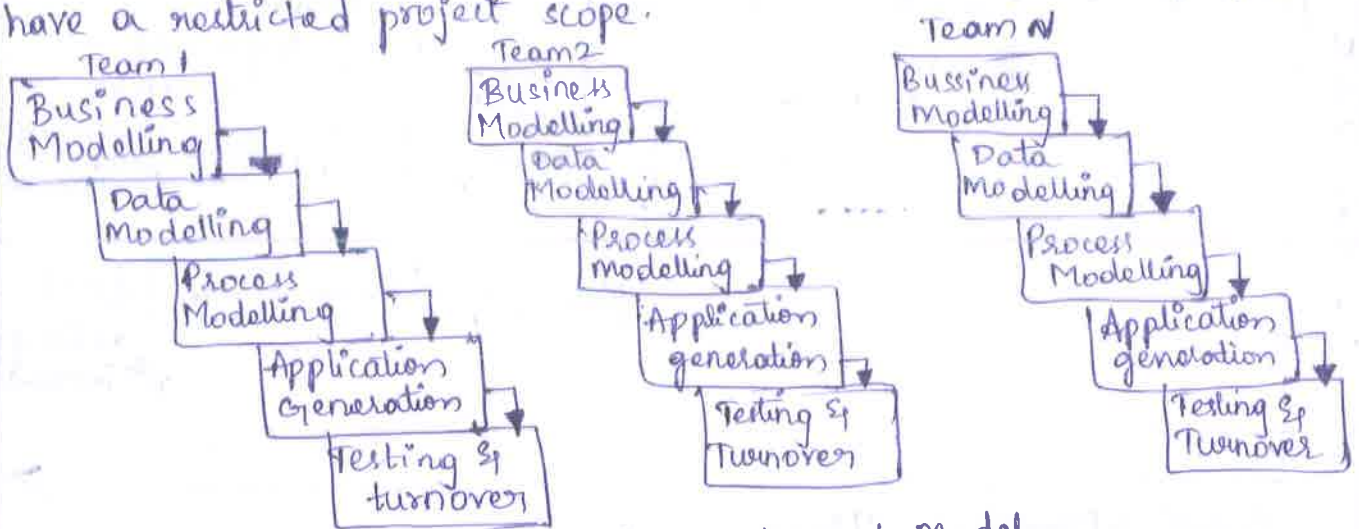 have a restricted project scope.
Team 1
Business
Modelling
Data
Modelling
Process
Modelling
Application
Generation
Testing &
turnover
Team 2
Business
Modelling
Data
Modelling
Process
modelling
Application
generation
Testing &
Turnover
.....
Team N
Bussiness
Modelling
Data
Modelling
Process
Modelling
Application
generation
Testing &
Turnover
model